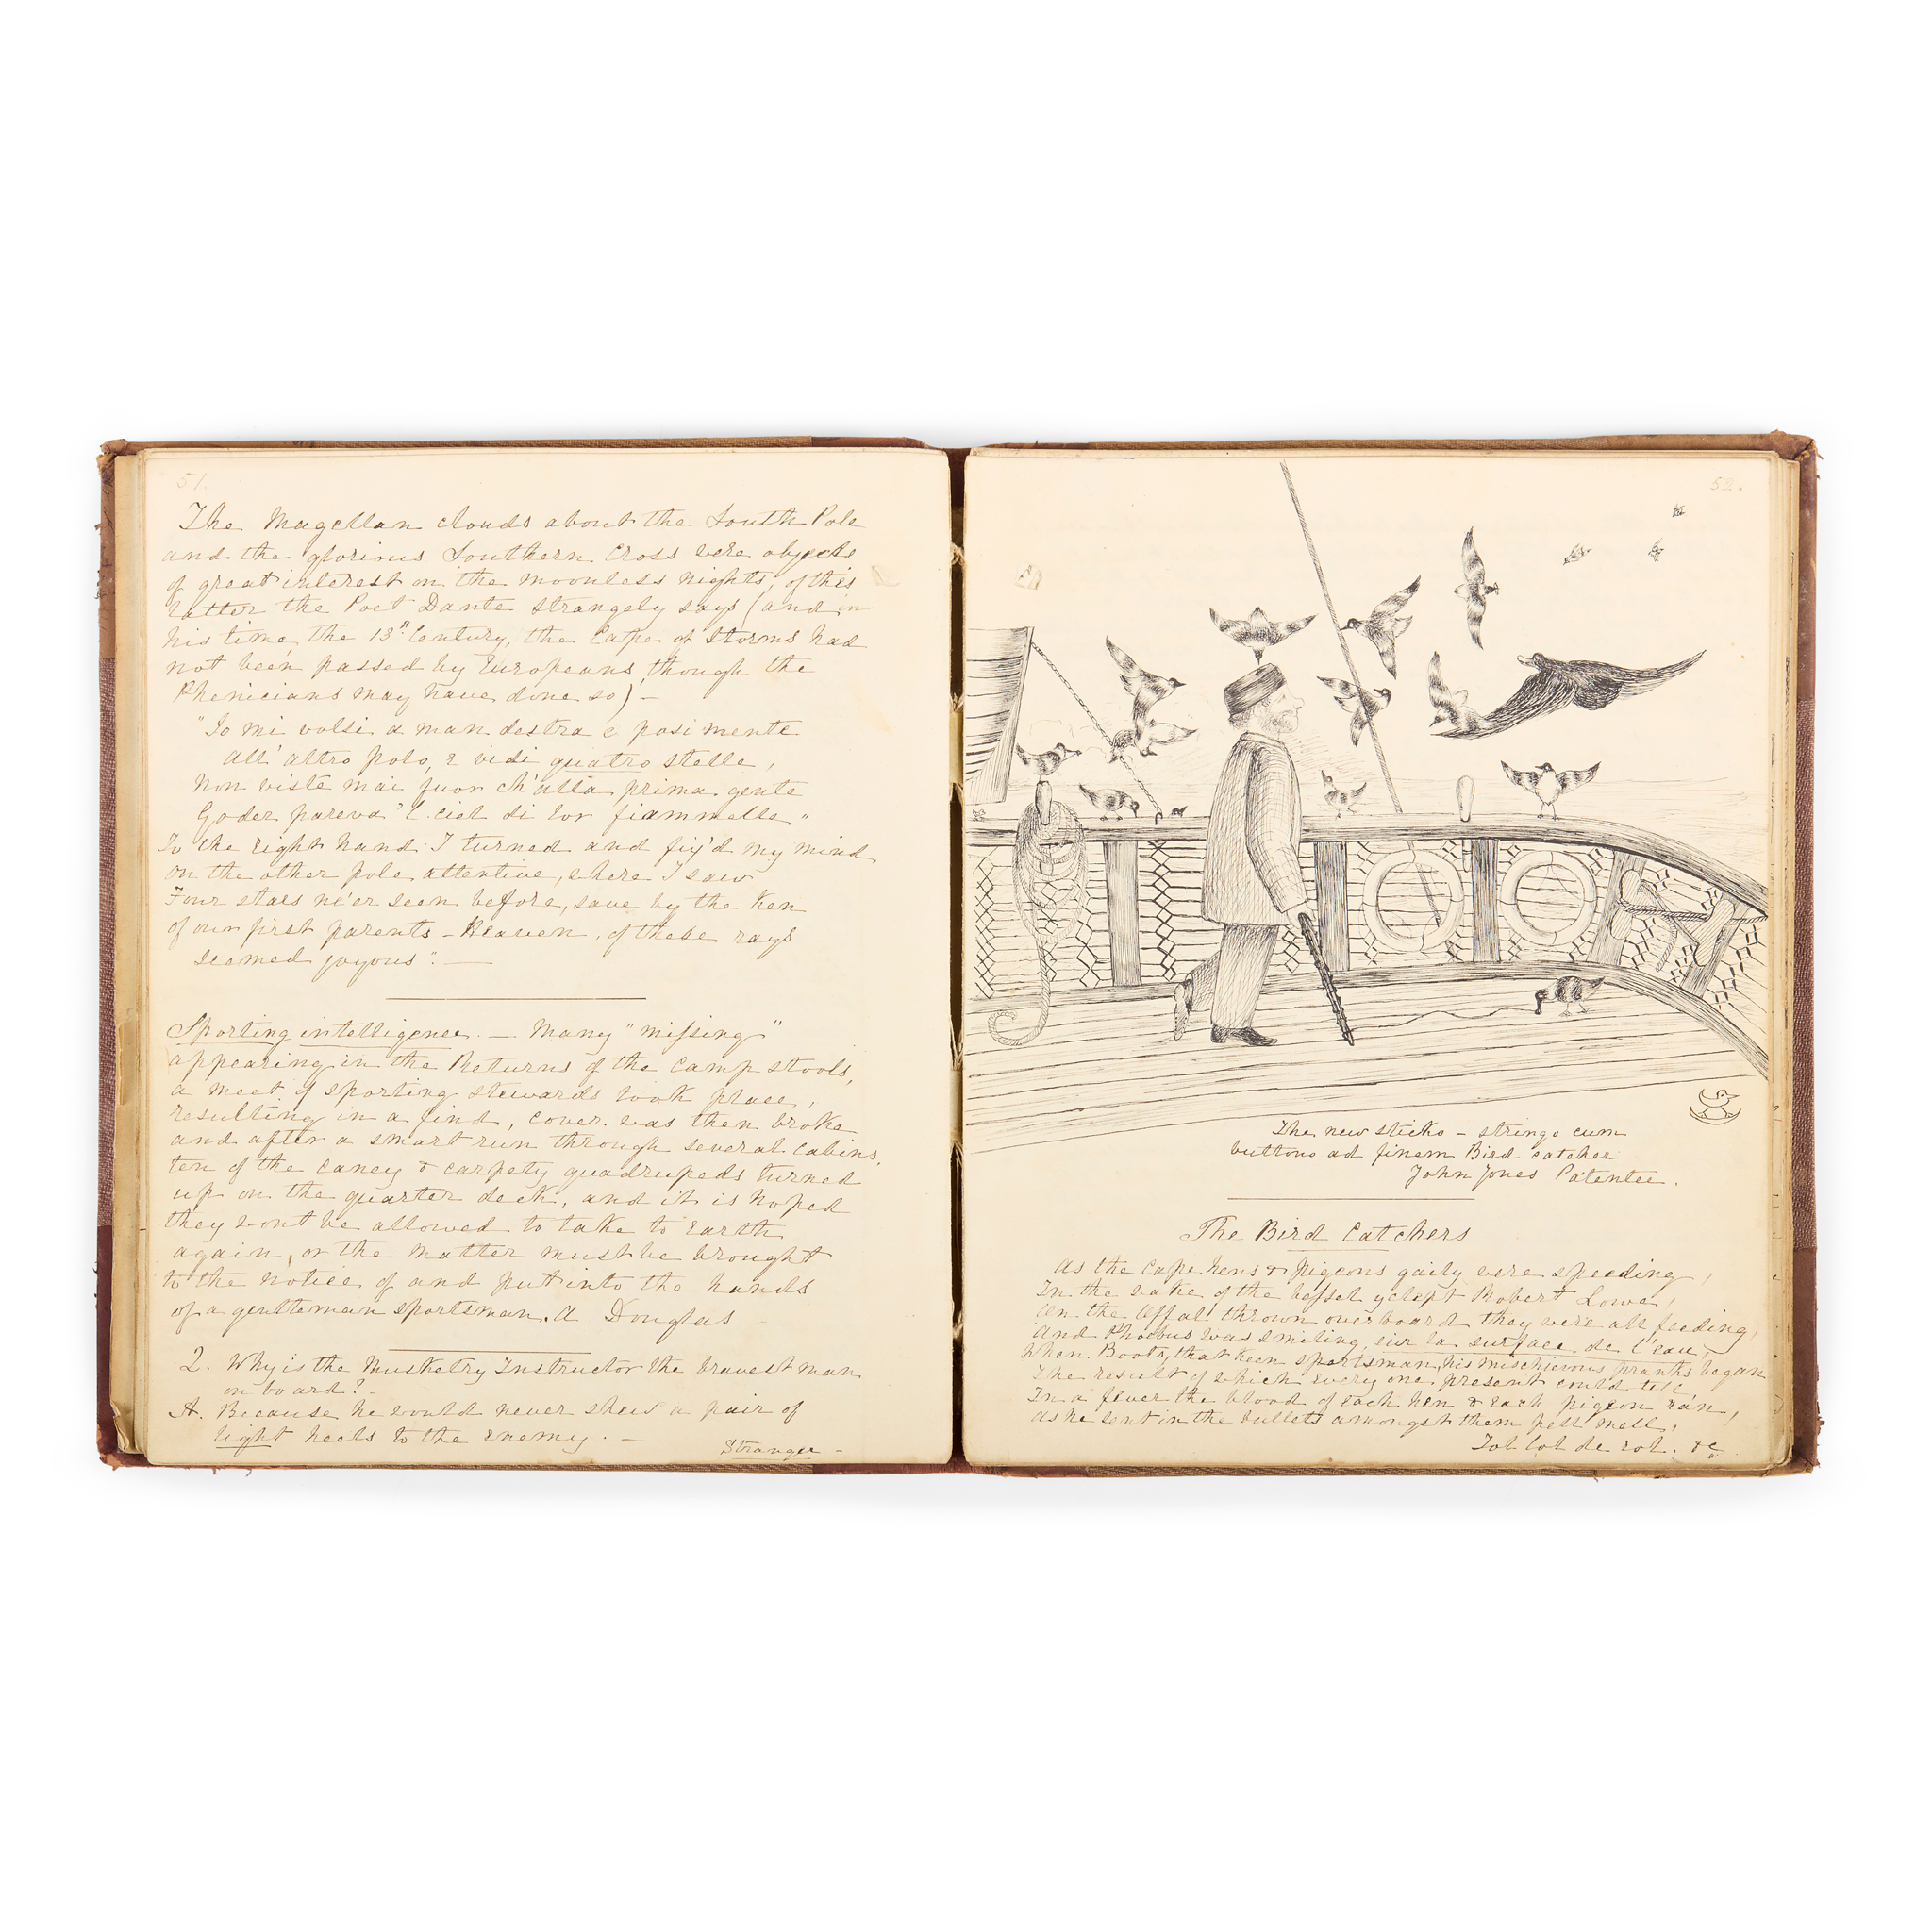 51.
The Magellan clouds about the South Pole
and the glorious Southern Cross were objects
of great interest on the moonless nights, of this
latter the Poet Dante strangely says (and in
his time, the 13th Century, the Cape of Storms had
not been passed by Europeans, though the
Phenicians may have done so) –
"Io mi volsi a man destra e posi mente
All' altro polo, e vidi quatro stelle,
Non viste mai fuor ch'alla prima gente
Goder pareva 'l ciel di lor fiammelle"
To the right hand I turned and fix'd my mind
on the other pole attentive, where I saw
Four stars ne'er seen before, save by the ken
of our first parents – Heaven, of these rays
seemed joyous". —
Sporting intelligence. — Many "missing"
appearing in the Returns of the camp stools,
a meet of sporting stewards took place,
resulting in a find, cover was then broke
and after a smart run through several cabins,
ten of the caney & carpety quadrupeds turned
up on the quarter deck, and it is hoped
they wont be allowed to take to earth
again, or the matter must be brought
to the notice of and put into the hands
of a gentleman sportsman. A Douglas
Q. Why is the Musketry Instructor the bravest man
on board? –
A. Because he would never shew a pair of
light heels to the enemy. –
Stranger –
52.
The new sticks – stringo cum
buttons ad finem Bird catcher
John Jones Patentee.
The Bird Catchers
As the Cape hens & pigeons gaily were speeding,
In the wake of the vessel yclept Robert Lowe,
On the Offal thrown overboard they were all feeding,
And Phoebus was smiling, sur la surface de l'eau,
When Boots, that keen sportsman, his mischievous pranks began
The result of which every one present could tell,
In a fever the blood of each hen & each pigeon ran,
As he sent in the bullets amongst them pell mell,
Tol lol de rol. &c.